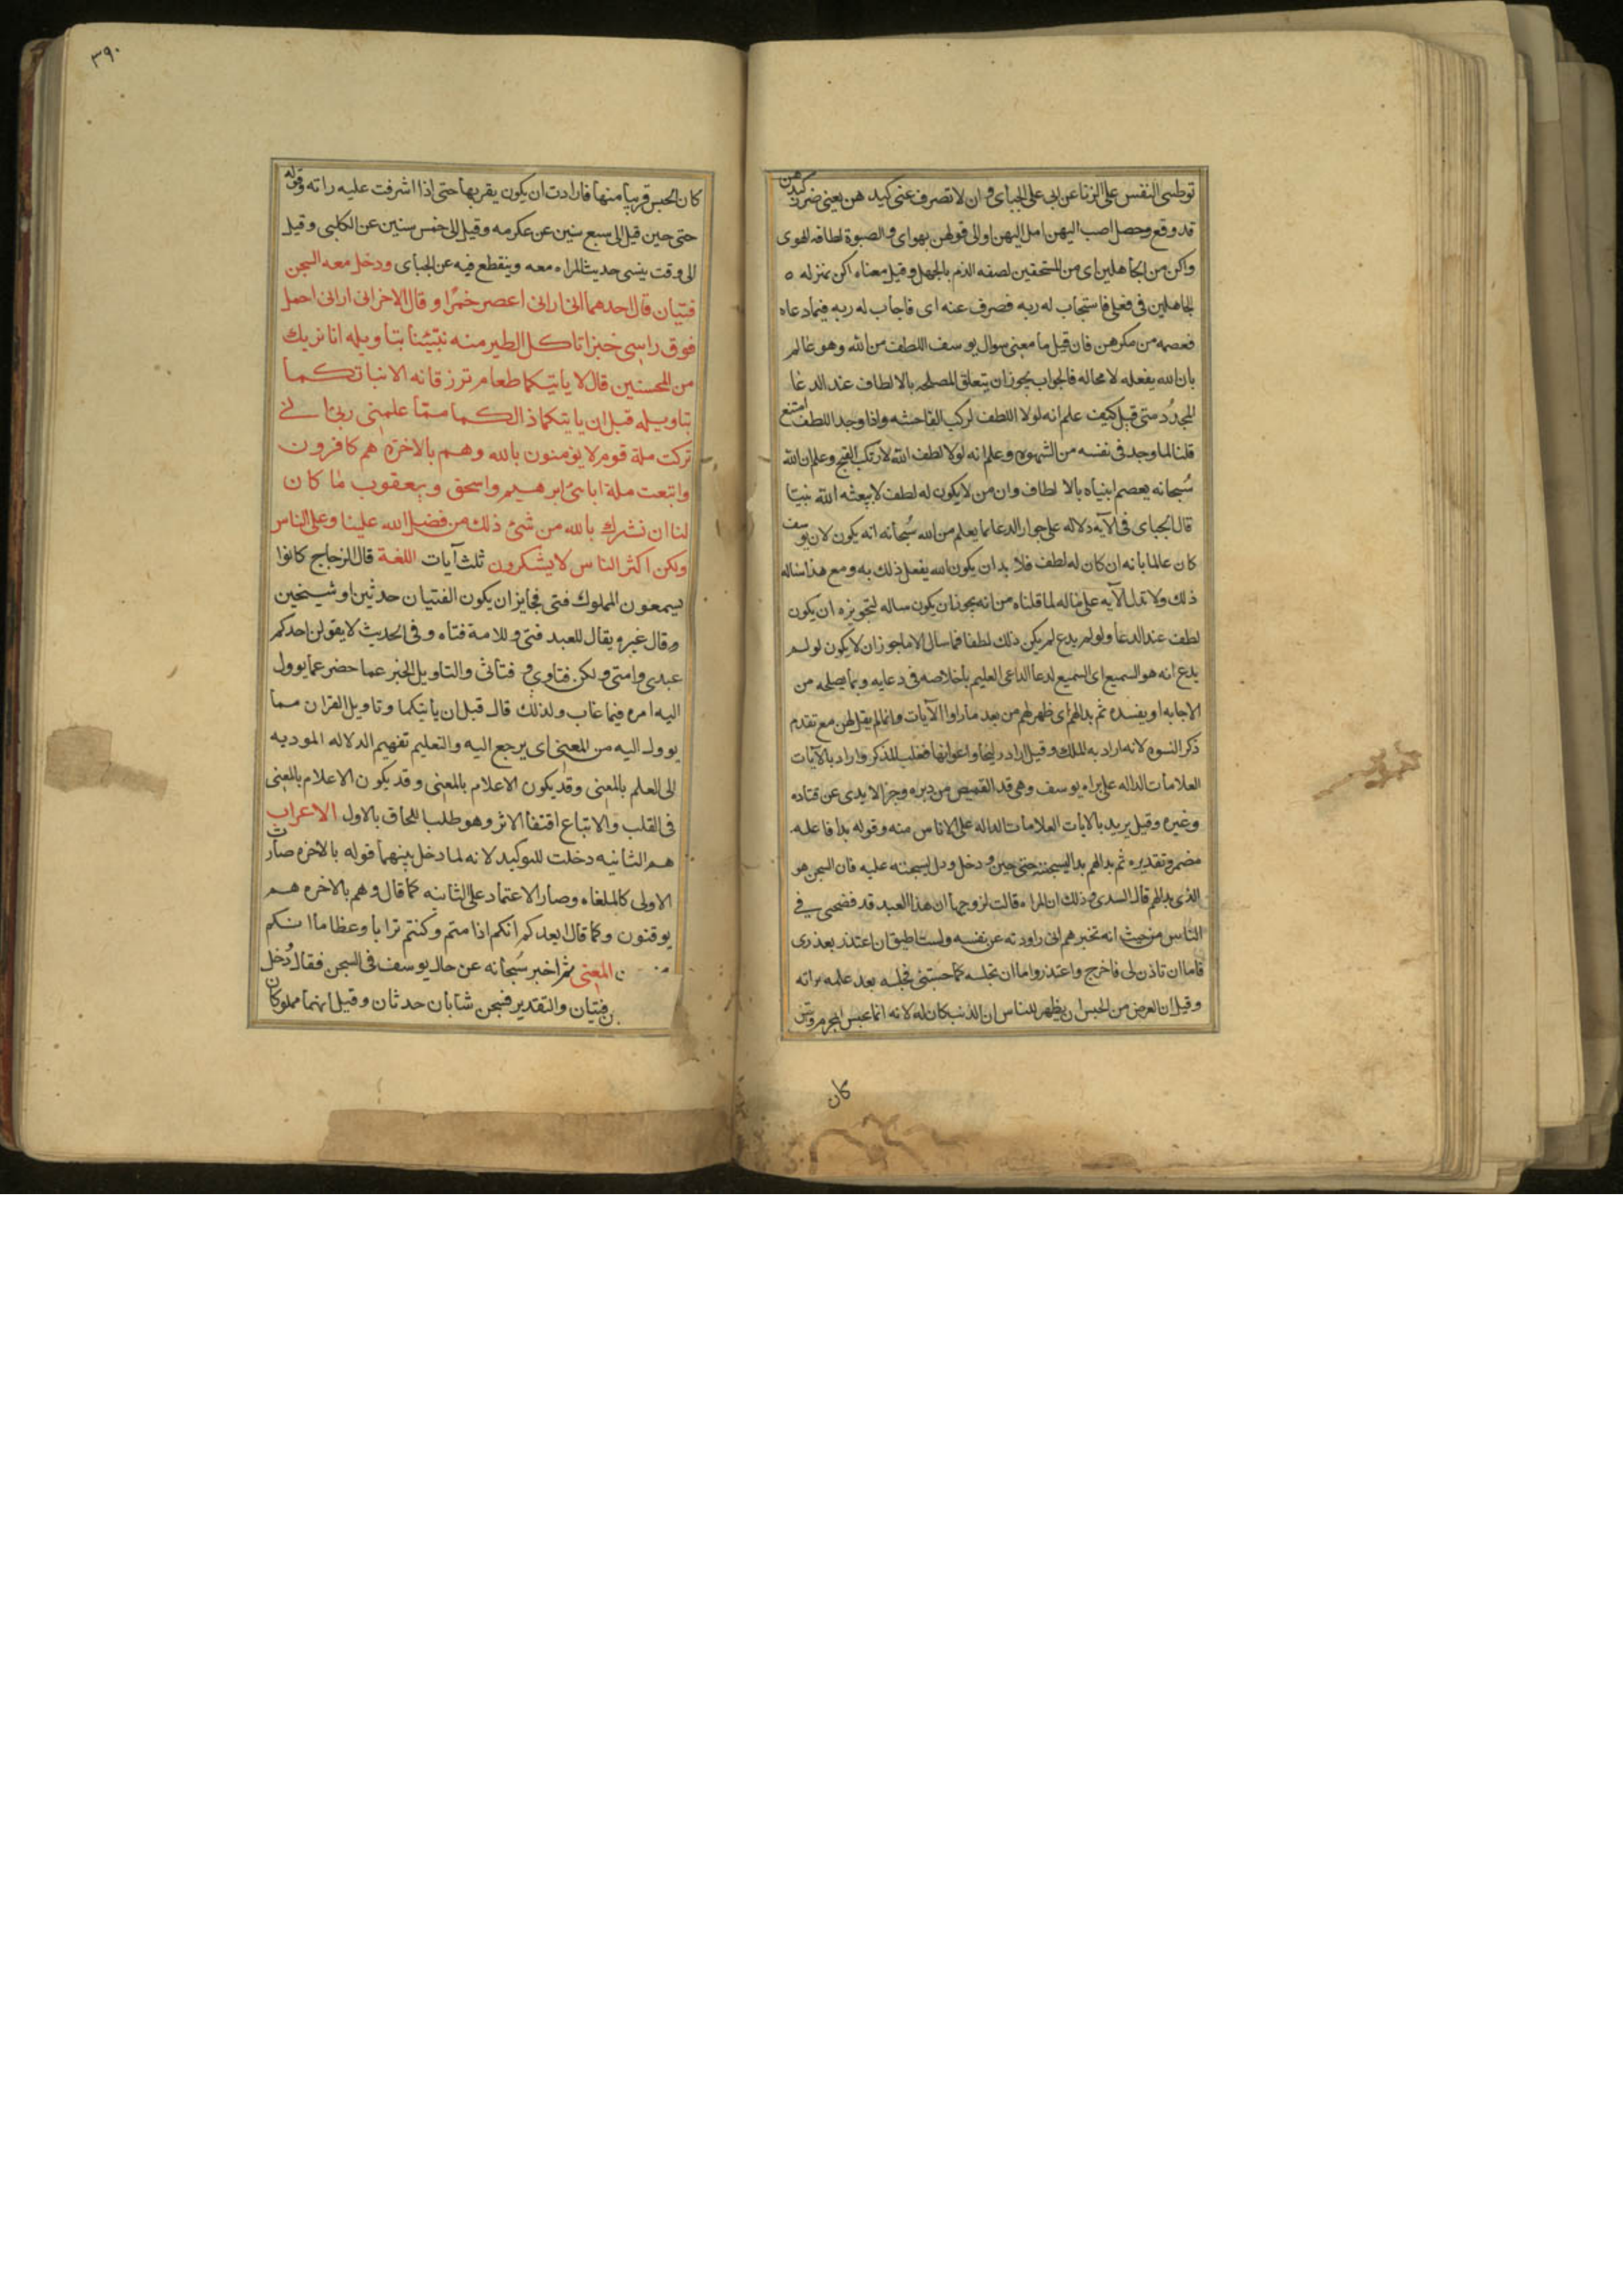 توطين النفس على الزنا عن ابى على الجباى و ان لا تصرف عنى كيدهن يعنى ضرر كيدهن
قد وقع وحصل اصب اليهن امل اليهن او الى قولهن بهواى و الصبوة لطافه الهوى
واكن من الجاهلين اى من المستحقين لصفه الذم بالجهل وقيل معناه اكن بمنزله
الجاهلين فى فعلى فاستجاب له ربه فصرف عنه اى فاجاب له ربه فيما دعاه
فعصمه من مكرهن فان قيل ما معنى سوال يوسف اللطف من الله وهو عالم
بان الله يفعله لا محاله فالجواب يجوز ان يتعلق المصلحه بالالطاف عند الدعا
المجدد ومتى قيل كيف علم انه لولا اللطف لركب الفاحشه واذا وجد اللطف امتنع
قلنا لما وجد فى نفسه من الشهوه وعلم انه لولا لطف الله لارتكب القبح وعلم ان الله
سبحانه يعصم انبياه بالالطاف وان من لا يكون له لطف لا يبعثه الله نبيا
قال الجباى فى الآيه دلاله على جواز الدعا بما يعلم من الله سبحانه انه يكون لان يوسف
كان عالما بانه ان كان له لطف فلا بد ان يكون الله يفعل ذلك به ومع هذا ساله
ذلك ولا تدل الآيه على ما قاله لما قلناه من انه يجوز ان يكون ساله لتجويزه ان يكون
لطف عند الدعا ولو لم يدع لم يكن ذلك لطفا فما سال الا ما جوز ان لا يكون لو لم
يدع انه هو السميع اى السميع لدعا الداعى العليم باخلاصه فى دعايه وبما يصلحه من
الاجابه او يفسده ثم بدا لهم اى ظهر لهم من بعد ما راوا الآيات وانما لم يقل لهن مع تقدم
ذكر النسوه لانه اراد به الملك وقيل اراد زليخا واعوانها فغلب المذكر واراد بالآيات
العلامات الداله على براه يوسف وهى قد القميص من دبره وجز الايدى عن قتاده
وغيره وقيل يريد بالايات العلامات الداله على الاياس منه وقوله بدا فاعله
مضمر وتقديره ثم بدا لهم بدا ليسجننه حتى حين ودخل و دل ليسجننه عليه فان السجن هو
الذى بدا لهم قال السدى و ذلك ان المراه قالت لزوجها ان هذا العبد قد فضحنى فى
الناس من حيث انه تخبرهم انى راودته عن نفسه ولست اطيق ان اعتذر بعذرى
فاما ان تاذن لى فاخرج واعتذر واما ان تحبسه كما حبستنى فحبسه بعد علمه براته
وقيل ان الغرض من الحبس ان يظهر للناس ان الذنب كان له لانه انما يحبس المجرم وقيل
كان
٣٩٠
كان الحبس قريبا منها فارادت ان يكون بقربها حتى اذا اشرفت عليه راته وقوله
حتى حين قيل الى سبع سنين عن عكرمه وقيل الى خمس سنين عن الكلبى وقيل
الى وقت ينسى حديث المراه معه وينقطع فيه عن الجباى ودخل معه السجن
فتيان قال احدهما انى ارانى اعصر خمرا و قال الاخر انى ارانى احمل
فوق راسى خبزا تاكل الطير منه نبئنا بتاويله انا نريك
من المحسنين قال لا ياتيكما طعام ترزقانه الا نباتكما
بتاويله قبل ان ياتيكما ذالكما مما علمنى ربى انى
تركت ملة قوم لا يؤمنون بالله وهم بالاخرة هم كافرون
واتبعت ملة اباءى ابرهيم واسحق ويعقوب ما كان
لنا ان نشرك بالله من شئ ذلك من فضل الله علينا وعلى الناس
ولكن اكثر الناس لا يشكرون ثلث آيات اللغة قال الزجاج كانوا
يسمعون المملوك فتى فجايز ان يكون الفتيان حدثين او شيخين
وقال غيره يقال للعبد فتى وللامة فتاه وفى الحديث لا يقولن احدكم
عبدى وامتى ولكن فتاى و فتاتى والتاويل الخبر عما حضر عما يوول
اليه امره فيما غاب ولذلك قال قبل ان ياتيكما وتاويل القران مما
يوول اليه من المعنى اى يرجع اليه والتعليم تفهيم الدلاله الموديه
الى العلم بالمعنى وقد يكون الاعلام بالمعنى وقد يكون الاعلام بالمعنى
فى القلب والاتباع اقتفا الاثر وهو طلب اللحاق بالاول الاعراب
هم الثانيه دخلت للتوكيد لانه لما دخل بينهما قوله بالاخره صارت
الاولى كالملغاه وصار الاعتماد على الثانيه كما قال وهم بالاخره هم
يوقنون وكما قال ايعدكم انكم اذا متم وكنتم ترابا وعظاما انكم
المعنى ثم اخبر سبحانه عن حال يوسف فى السجن فقال دخل
فتيان والتقدير فسجن شابان حدثان وقيل انهما مملوكان